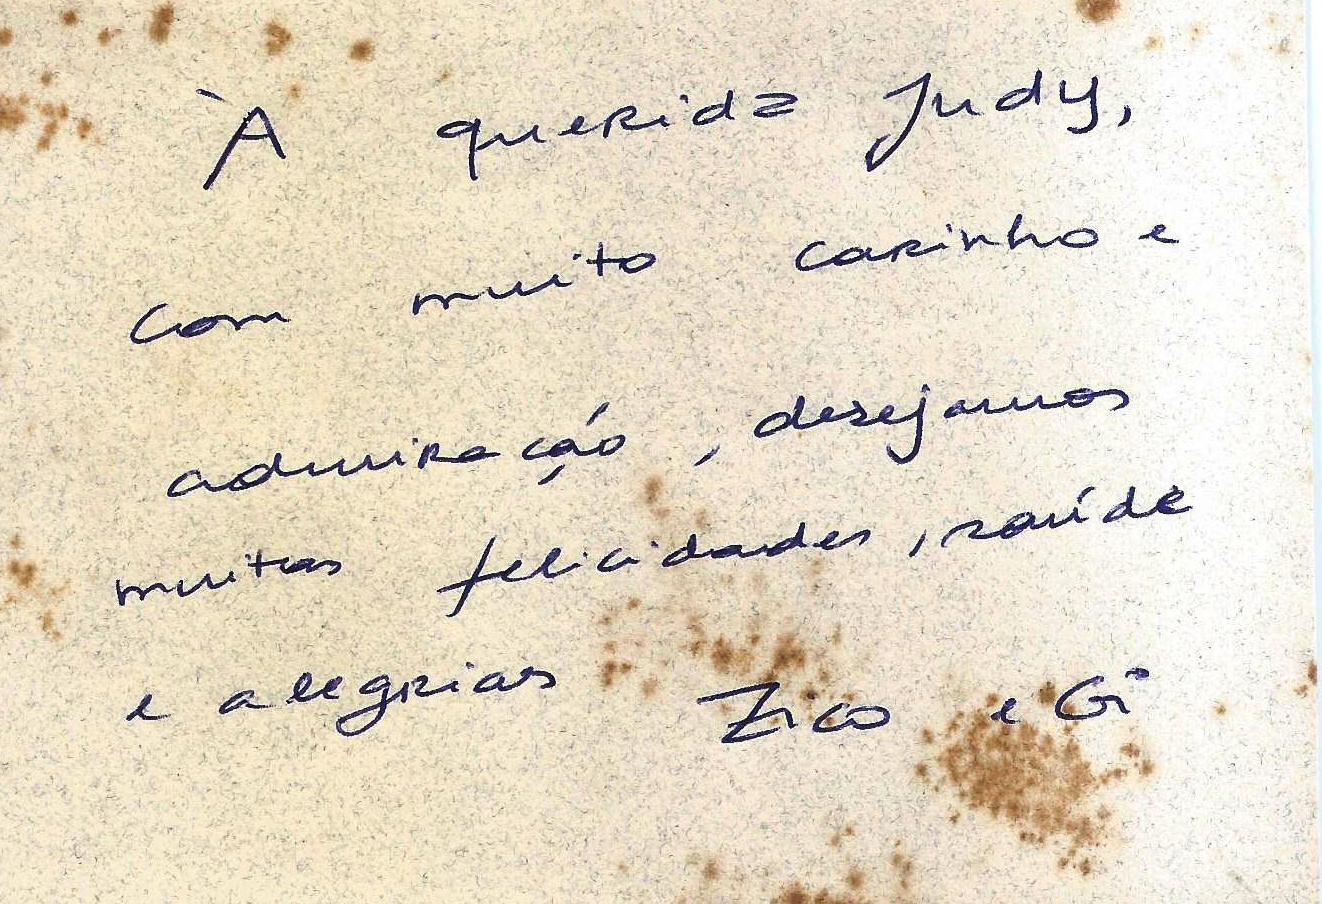 À querida Judy,
com muito carinho e
admiração, desejamos
muitas felicidades, saúde
e alegrias Zico e Gi